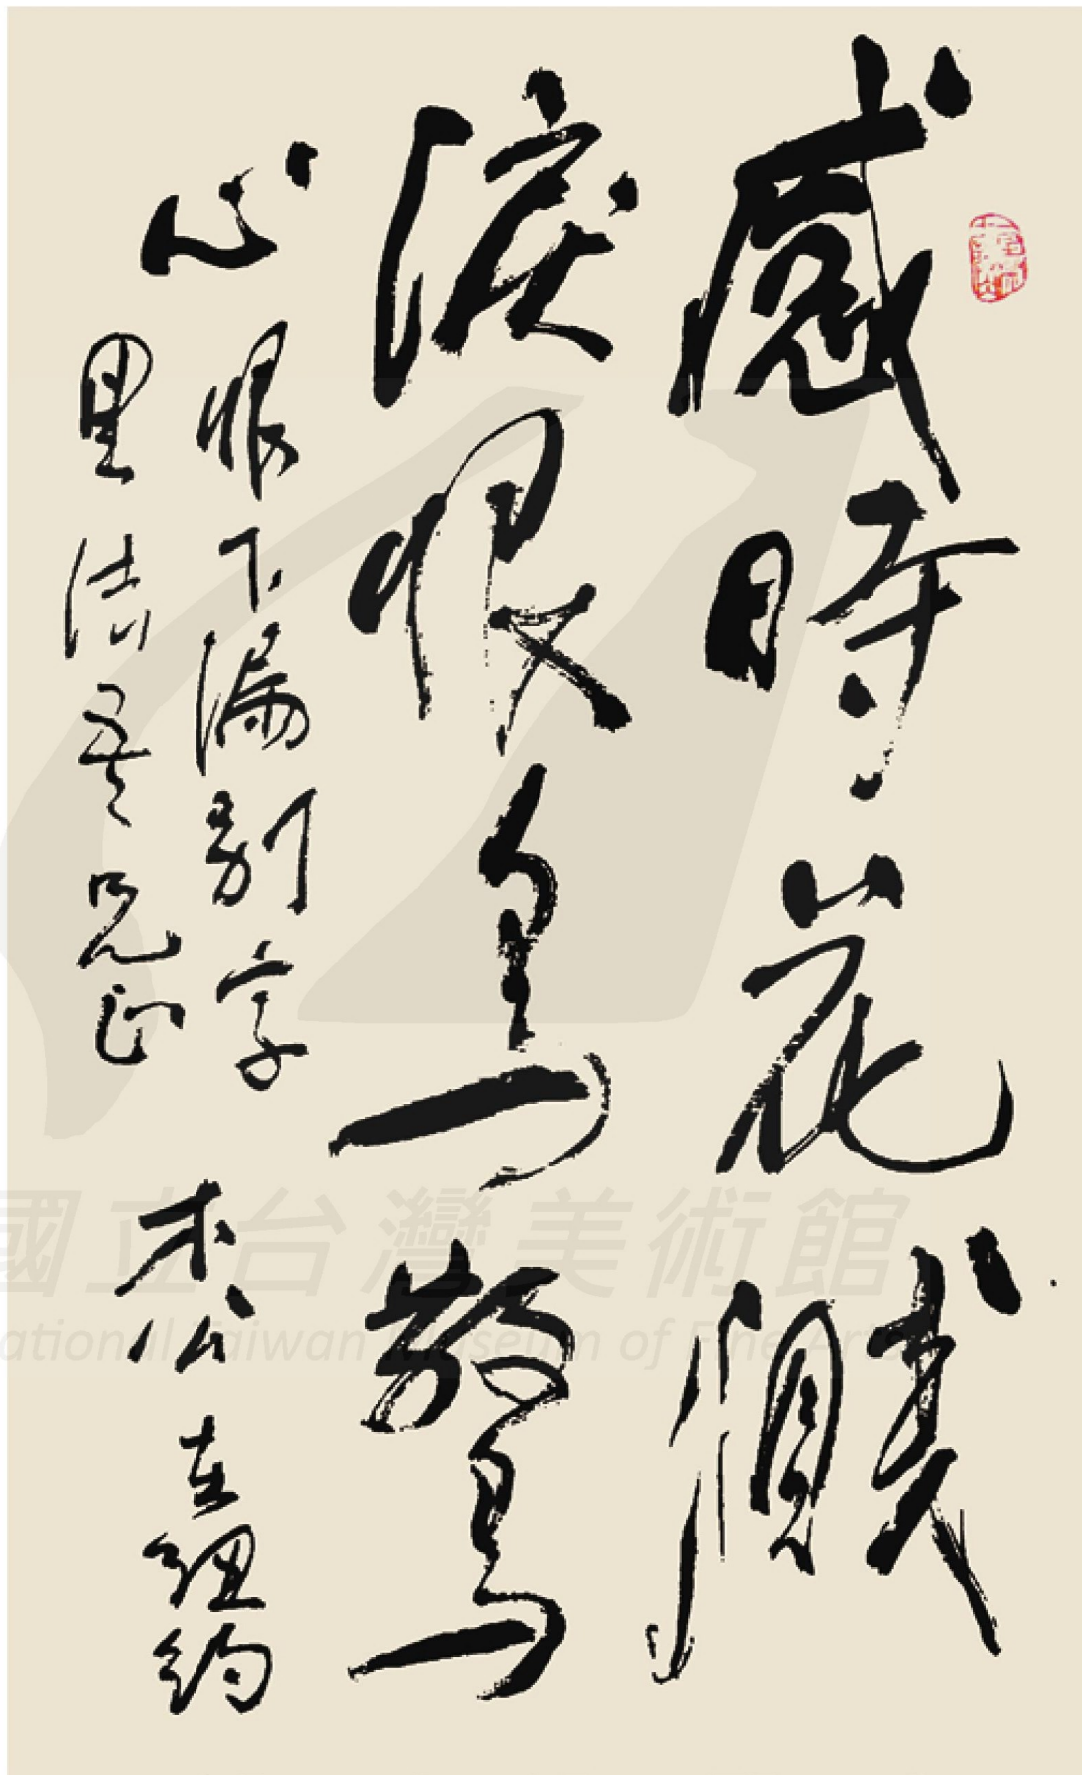 感時花濺
淚恨鳥驚
心 恨下漏別字
墨濤吾兄正
木公在紐約
國立台灣美術館
National Taiwan Museum of Fine Arts